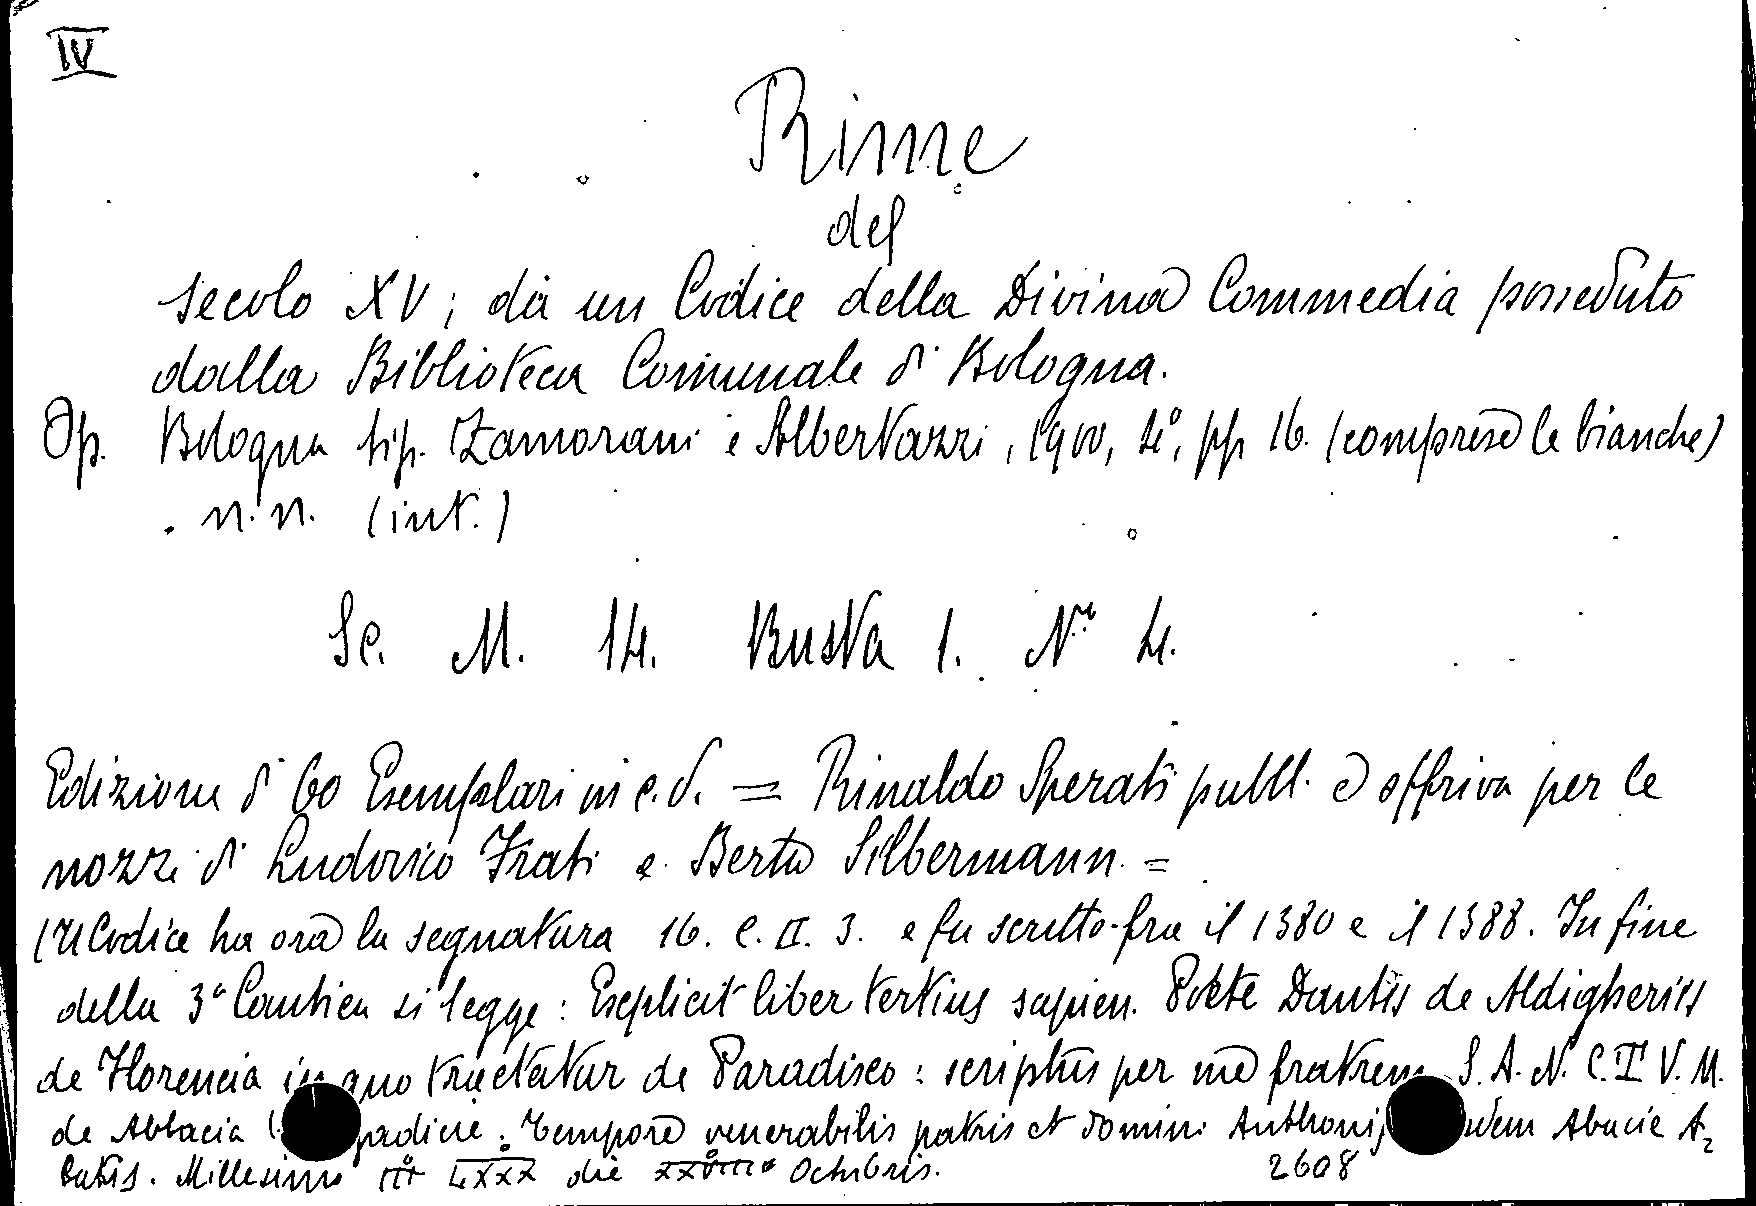 IV
Rime
del
secolo XV; da un Codice della Divina Commedia posseduto
dalla Biblioteca Comunale di Bologna.
Op. Bologna tip. Zamorani e Albertazzi, 1900, 4°, pp 16. (comprese le bianche)
n.n. (int.)
Sc. M. 14. Busta 1. N° 4.
Edizione di 60 Esemplari in c.d. = Rinaldo Sperati pubbl. e offriva per le
nozze di Ludovico Frati e Berta Silbermann =
(Il Codice ha ora la segnatura 16. C. II. 3. e fu scritto fra il 1380 e il 1388. In fine
della 3ª Cantica si legge: Explicit liber tertius sapien. Poete Dantis de Aldigheriis
de Florencia in quo tractatur de Paradiso: scriptus per me fratrem S. A. N. C. T. V. M.
de Abbacia Tempore venerabilis patris et domini Anthonij Abacie A
batis. Millesimo LXXX die Octubris.
2608